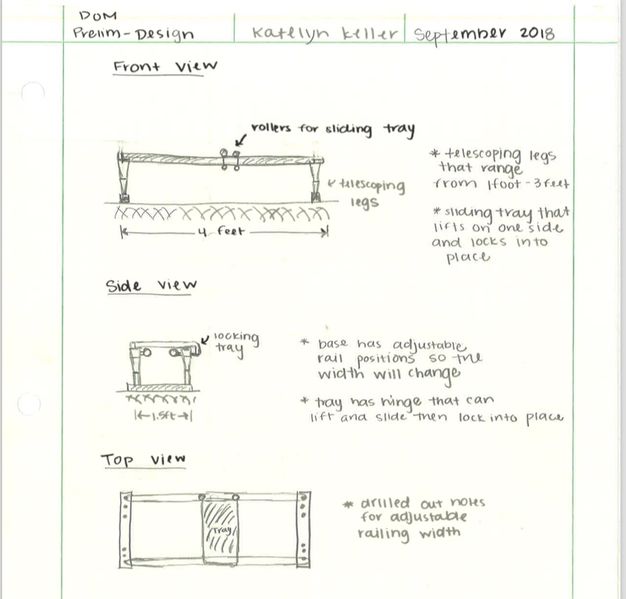 DOM
Prelim-Design
Katelyn Keller
September 2018
Front View
rollers for sliding tray
telescoping
legs
* telescoping legs
that range
from 1foot-3feet
* sliding tray that
lifts on one side
and locks into
place
4 feet
Side View
locking
tray
1.5ft
* base has adjustable
rail positions so the
width will change
* tray has hinge that can
lift and slide then lock into place
Top View
tray
* drilled out holes
for adjustable
railing width